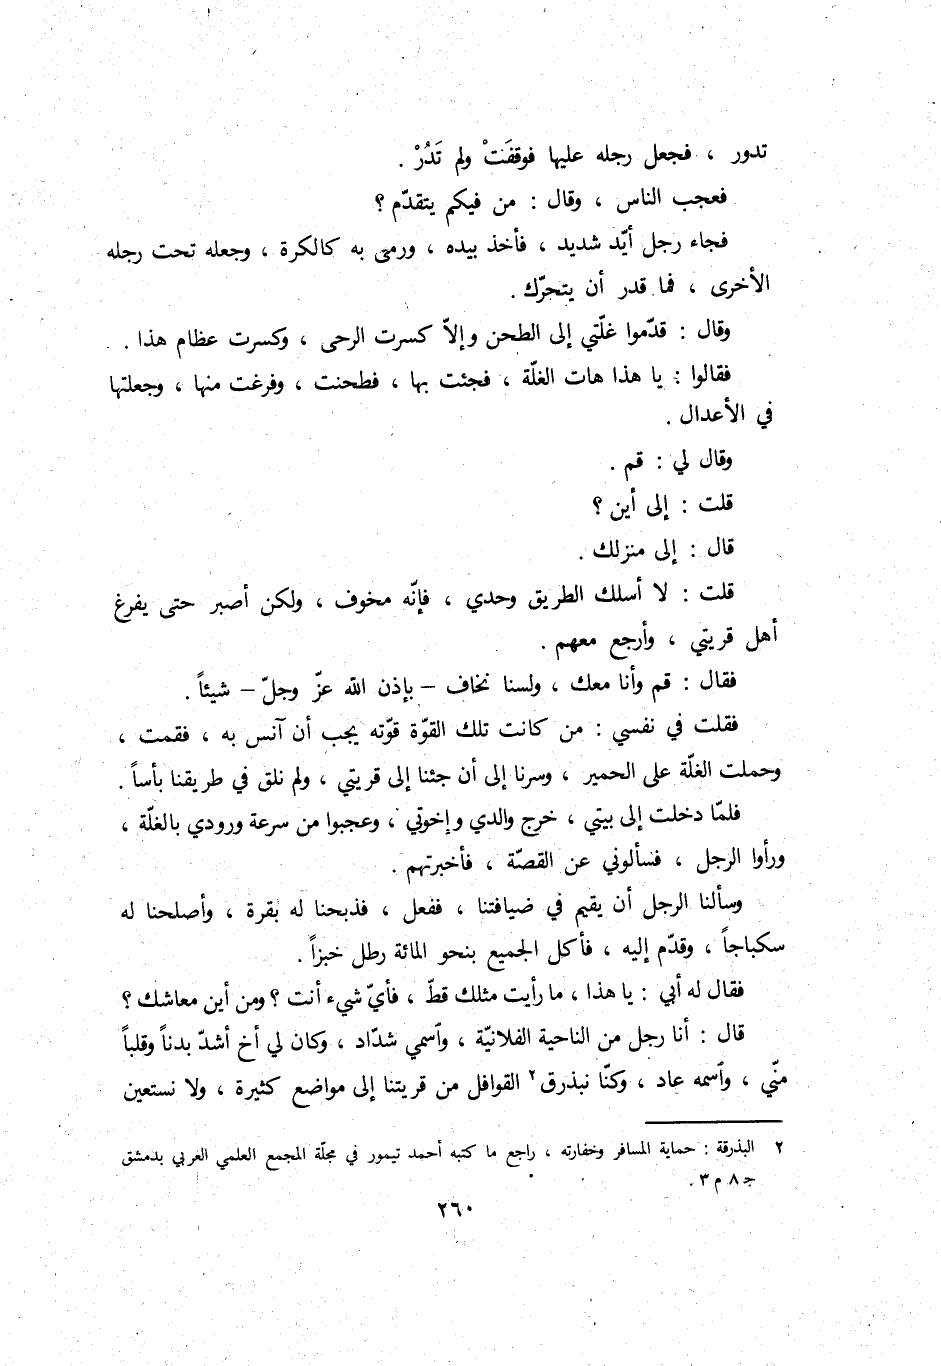 تدور ، فجعل رجله عليها فوقفَتْ ولم تَدُرْ .
فعجب الناس ، وقال : من فيكم يتقدّم ؟
فجاء رجل أيّد شديد ، فأخذ بيده ، ورمى به كالكرة ، وجعله تحت رجله
الأخرى ، فما قدر أن يتحرّك .
وقال : قدّموا غلّتي إلى الطحن وإلاّ كسرت الرحى ، وكسرت عظام هذا .
فقالوا : يا هذا هات الغلّة ، فجئت بها ، فطحنت ، وفرغت منها ، وجعلتها
في الأعدال .
وقال لي : قم .
قلت : إلى أين ؟
قال : إلى منزلك .
قلت : لا أسلك الطريق وحدي ، فإنّه مخوف ، ولكن أصبر حتى يفرغ
أهل قريتي ، وأرجع معهم .
فقال : قم وأنا معك ، ولسنا نخاف – بإذن الله عزّ وجلّ – شيئاً .
فقلت في نفسي : من كانت تلك القوّة قوّته يجب أن آنس به ، فقمت ،
وحملت الغلّة على الحمير ، وسرنا إلى أن جئنا إلى قريتي ، ولم نلق في طريقنا بأساً .
فلمّا دخلت إلى بيتي ، خرج والدي وإخوتي ، وعجبوا من سرعة ورودي بالغلّة ،
ورأوا الرجل ، فسألوني عن القصّة ، فأخبرتهم .
وسألنا الرجل أن يقيم في ضيافتنا ، ففعل ، فذبحنا له بقرة ، وأصلحنا له
سكباجاً ، وقدّم إليه ، فأكل الجميع بنحو المائة رطل خبزاً .
فقال له أبي : يا هذا ، ما رأيت مثلك قطّ ، فأيّ شيء أنت ؟ ومن أين معاشك ؟
قال : أنا رجل من الناحية الفلانيّة ، وٱسمي شدّاد ، وكان لي أخ أشدّ بدناً وقلباً
منّي ، وٱسمه عاد ، وكنّا نبذرق٢ القوافل من قريتنا إلى مواضع كثيرة ، ولا نستعين
٢ البذرقة : حماية المسافر وخفارته ، راجع ما كتبه أحمد تيمور في مجلّة المجمع العلمي العربي بدمشق
ج ٨ م ٣ .
٢٦٠